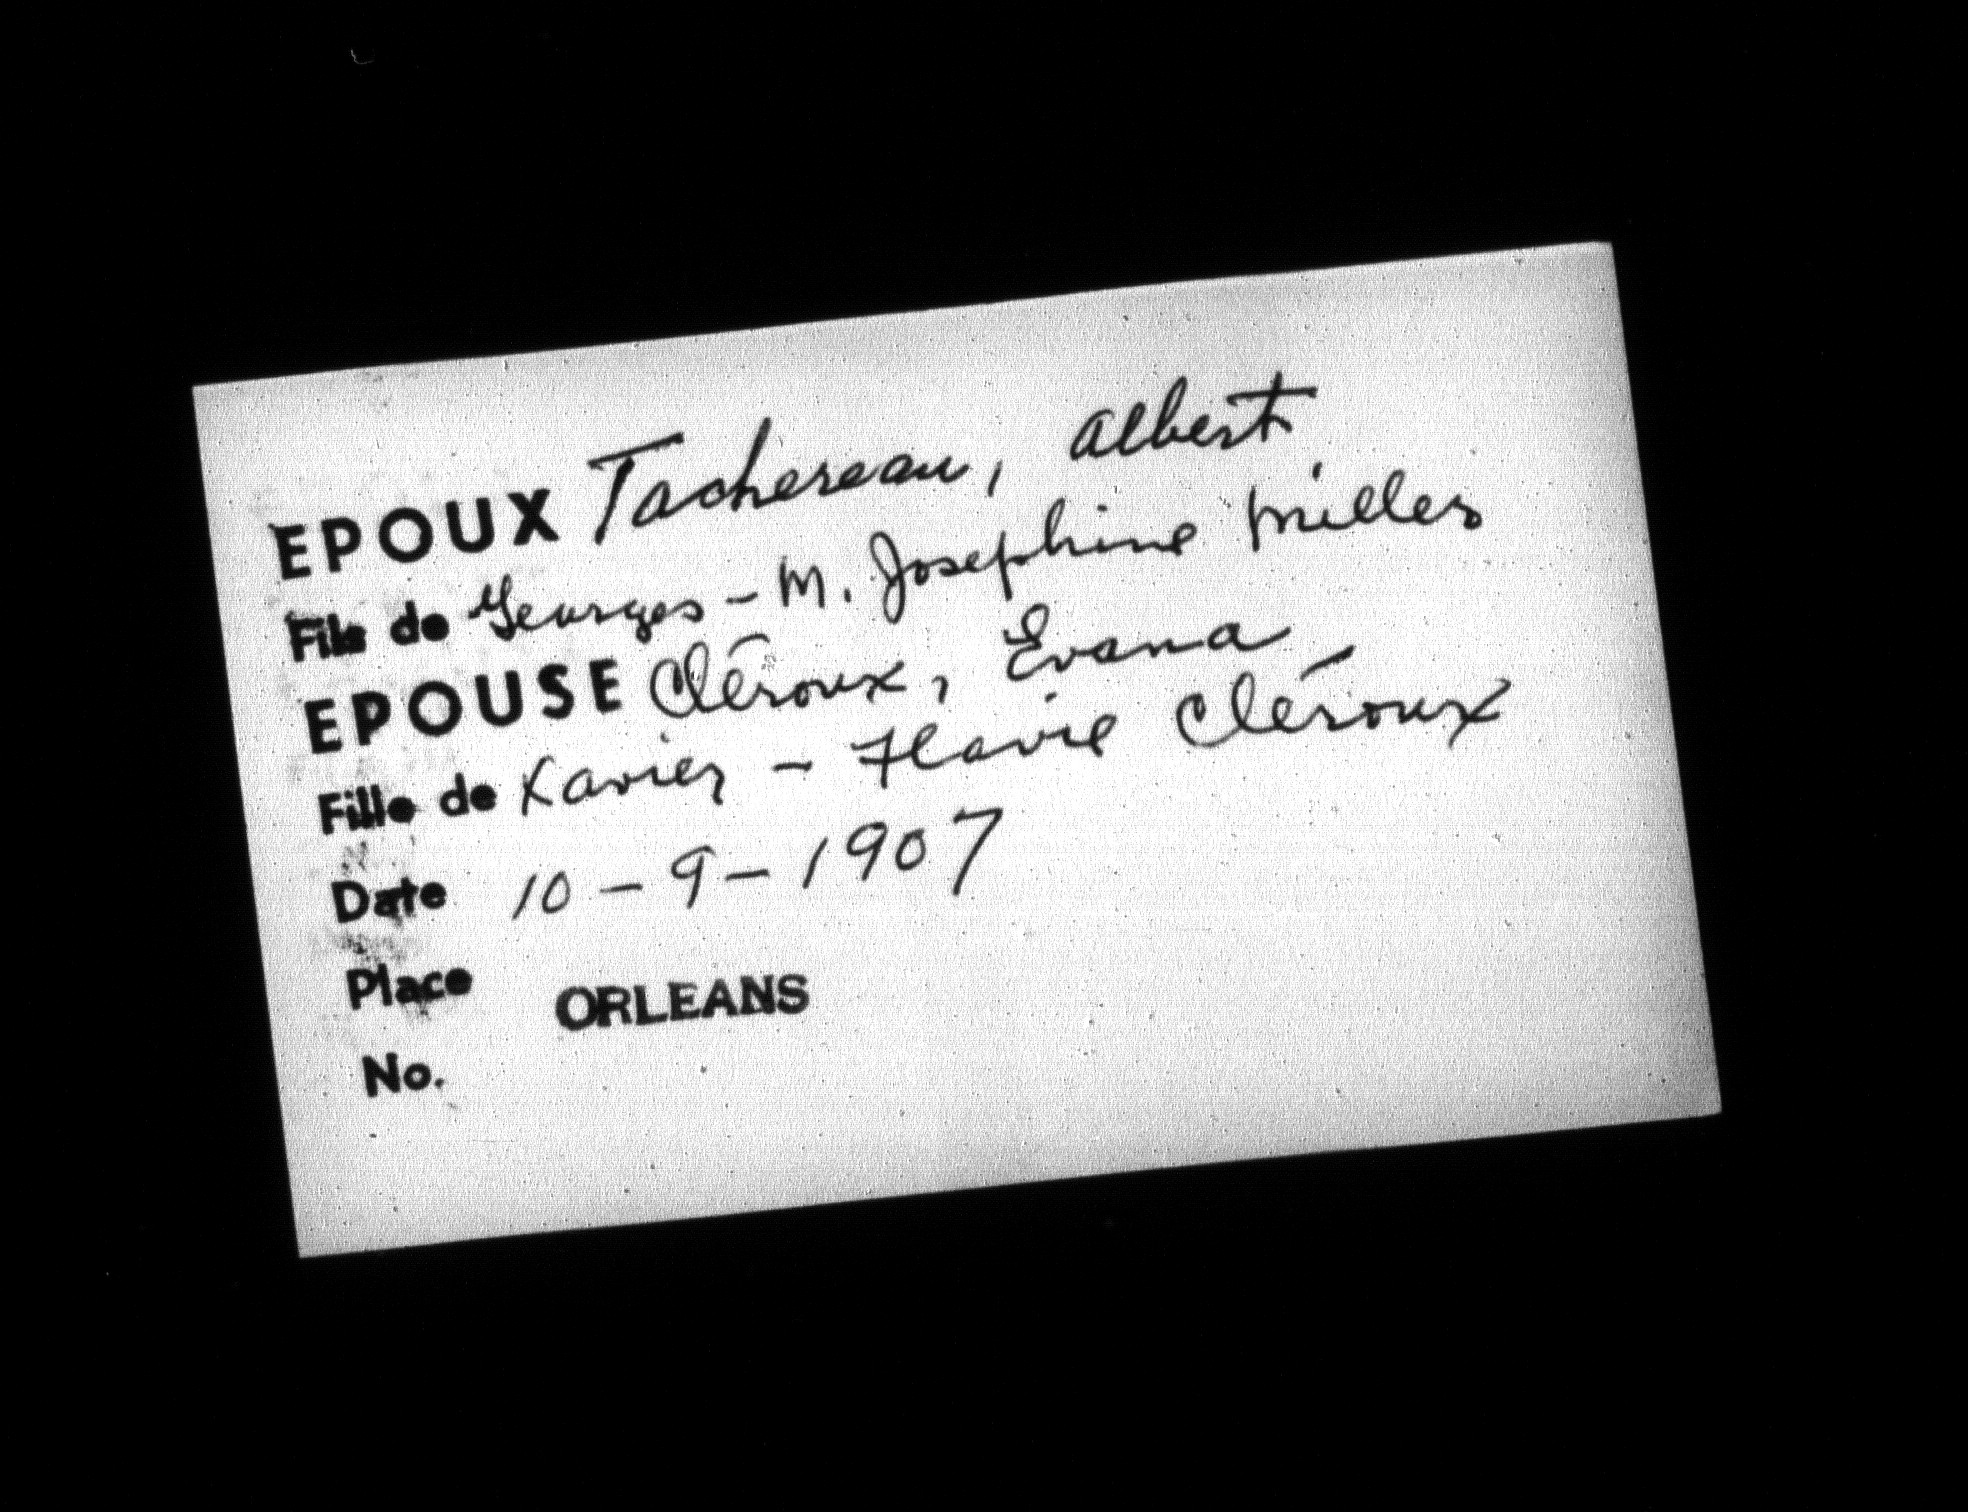 EPOUX Tachereau, Albert
Fils de Georges - M. Josephine Miller
EPOUSE Cléroux, Evana
Fille de Xavier - Flavie Cléroux
Date 10-9-1907
Place ORLEANS
No.